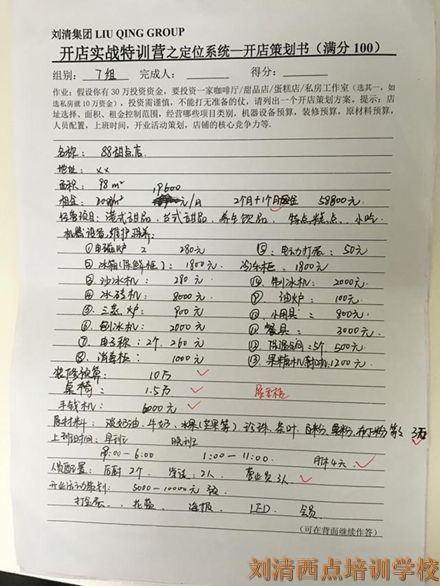 刘清集团 LIU QING GROUP
开店实战特训营之定位系统—开店策划书（满分 100）
组别： 7组 完成人： 得分：
作业：假设你有 30 万投资资金，要投资一家咖啡厅/甜品店/蛋糕店/私房工作室（选其一，如
选私房就 10 万资金），投资需谨慎，不能打无准备的仗，请列出一个开店策划方案。提示：店
址选择、面积、租金控制范围，经营哪些项目类别，机器设备预算，装修预算，原材料预算，
人员配置，上班时间，开业活动策划，店铺的核心竞争力等。
名称：88甜品店
地址：xx
面积：98m²
租金： 19600 元/月 2个月+1个月 58800元
经营项目：港式甜品，台式甜品，养生饮品，特点糕点，小吃
机器设备
①电磁炉 2 280元
⑮：电力打蛋：50元
②冰箱(陈鲜柜)：1800元
冷冻柜：1800元
③沙冰机：280元
制冰机：2000元
④冰砖机：8000元
油炉：100元
⑤三急炉：900元
小用具：800元
⑥刨冰机：2000元
餐具：3000元
⑦电子称：2个，260元
5个 500元
⑧消毒柜：1000元
1200元
装修预算：10万
桌椅：1.5万
手钱机：6000元
原材料：淡奶油，牛奶，水果(芒果等)
3万
上班时间：早班 晚班
9:00-6:00 1:00-11:00 月休4天
人员配置：后厨2个 2人 营业员3人
5000-10000元
海报 LED 会员
（可在背面继续作答）
刘清西点培训学校